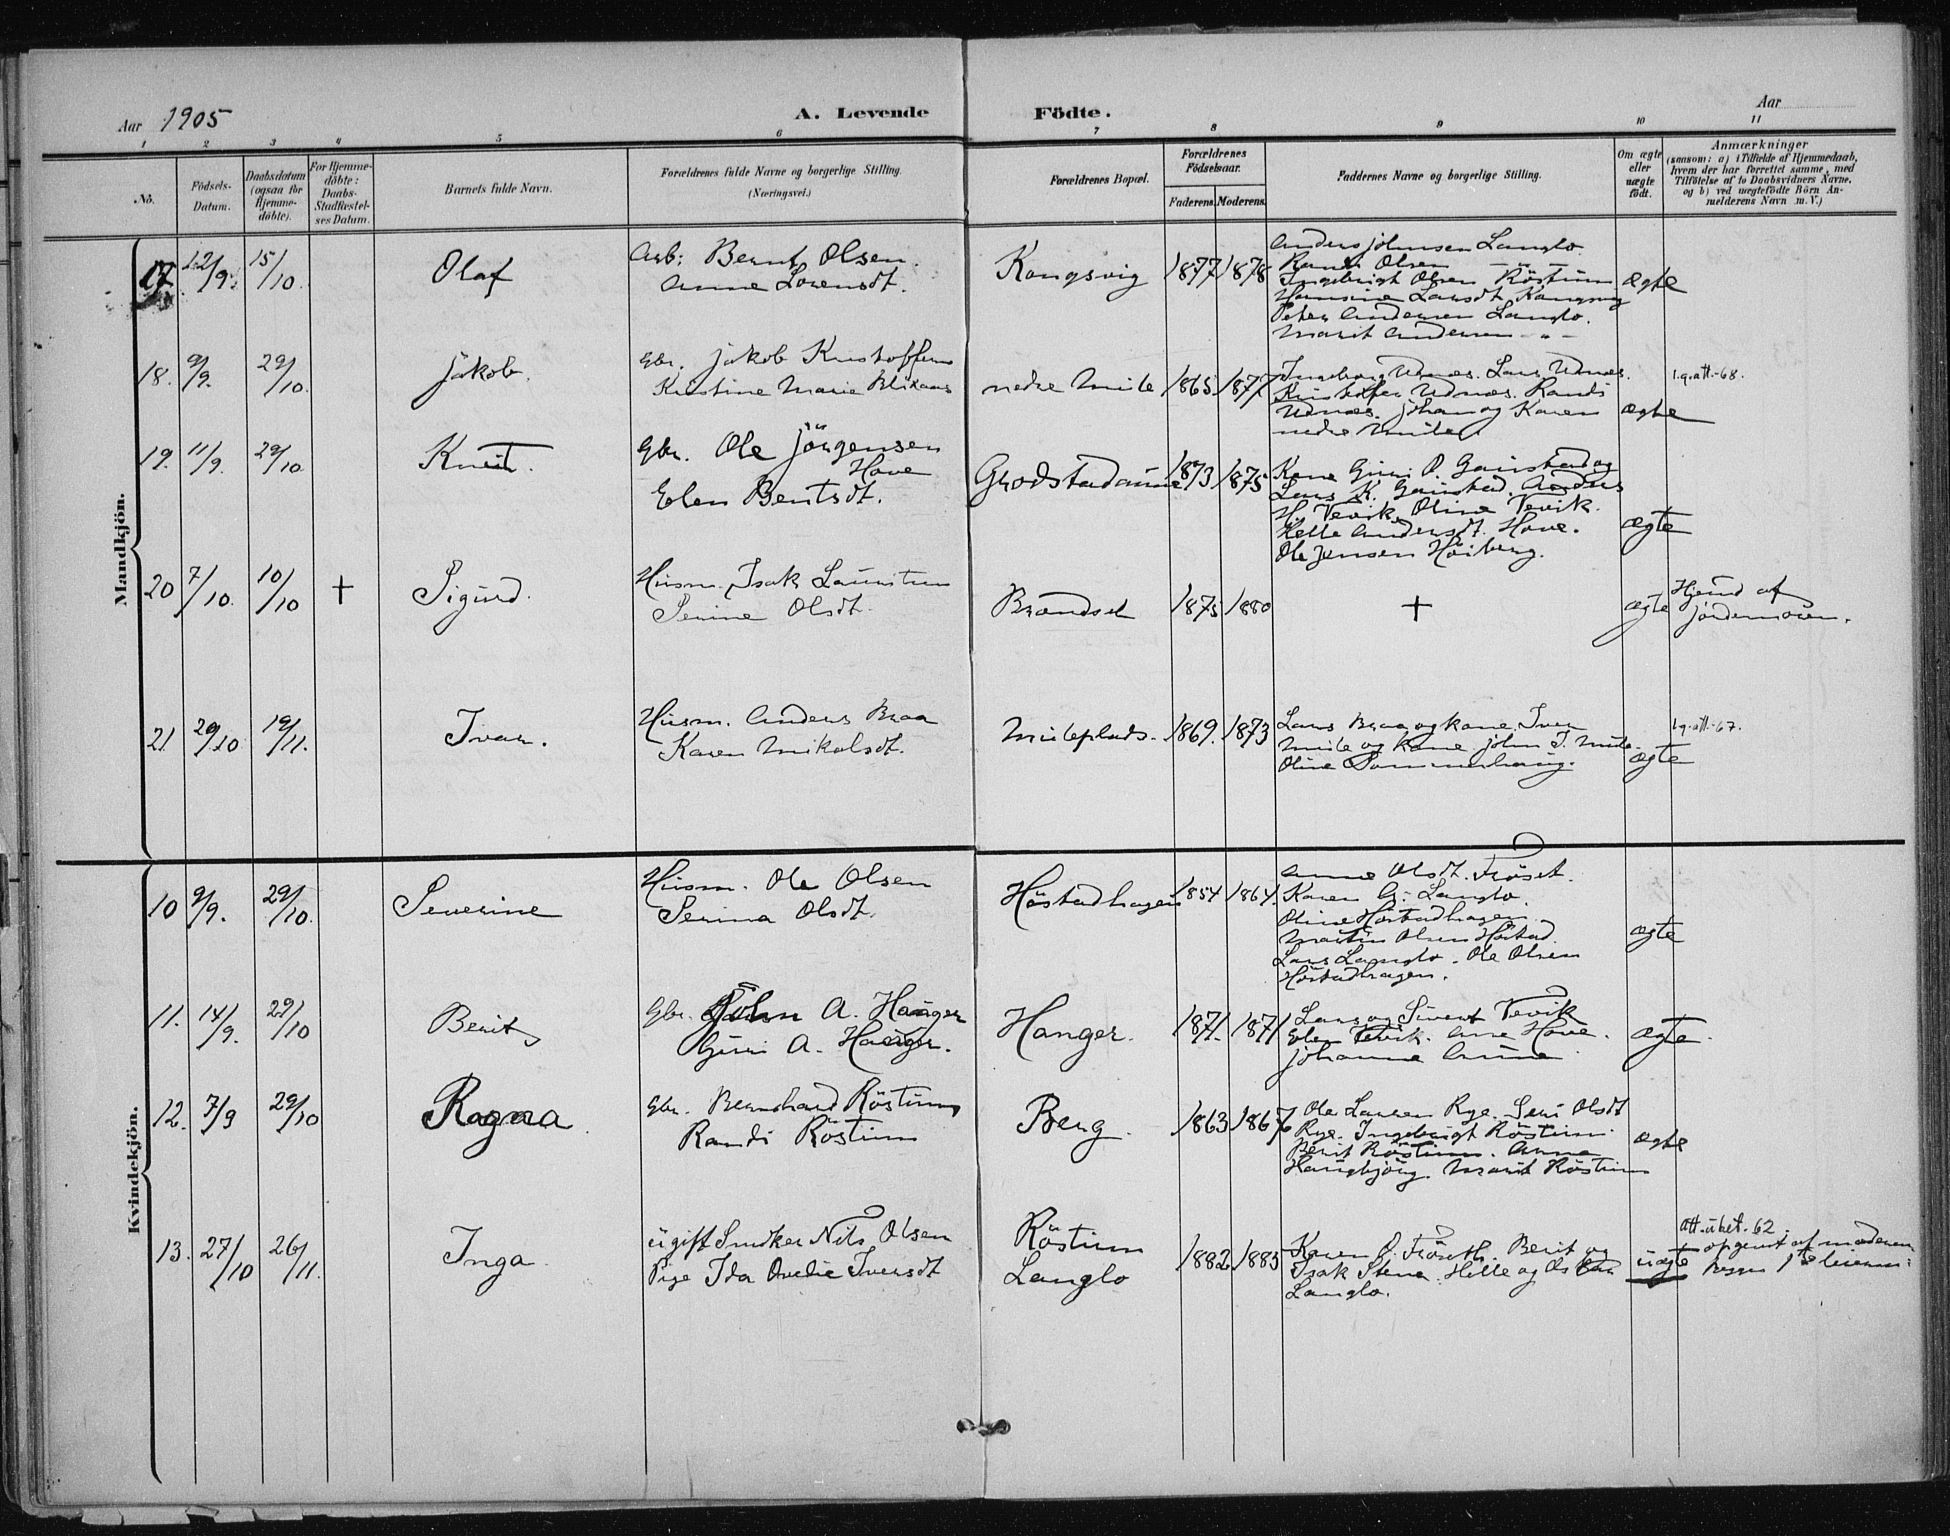 Aar 1905
A. Levende Födte.
Aar
1 2 3 4 5 6 7 8 9 10 11
No.
Födsels-Datum.
Daabsdatum (ogsaa for Hjemme-döbte).
For Hjemme-döbte: Daabs-Stadfæstel-ses Datum.
Barnets fulde Navn.
Forældrenes fulde Navne og borgerlige Stilling.
(Næringsvei.)
Forældrenes Bopæl.
Forældrenes Födselsaar.
Faderens. Moderens.
Faddernes Navne og borgerlige Stilling.
Om ægte eller uægte födt.
Anmærkninger
(saasom: a) i Tilfælde af Hjemmedaab,
hvem der har forrettet samme, med
Tilföielse af to Daabsvidners Navne,
og b) ved uægtefödte Börn An-
melderens Navn m. V.)
Mandkjön.
17 12/9. 15/10 Olaf
Arb: Bernt Olsen.
Anne Lorensdt.
Kongsvig 1877 1878
Anders Johnsen Langlo
Olsen
Ingebrigt Olsen Röstum
Hansine Larsdt. Kongsvig
Peter Andersen Langlo.
Marit Andersen - " -
ægte
18. 9/9. 29/10. Jakob.
Gbr. Jakob Kristoffersen
Kristine Marie
nedre Mule 1865 1877
Ingeborg Udnæs. Lars Udnæs.
Kristofer Udnæs. Randi
Udnæs. Johan og Karen
nedre Mule.
ægte
l.g.att.-68.
19. 11/9. 29/10 Knut.
Gbr. Ole Jörgensen
Hove
Elen Bentsdt.
Grodstadaune 1873 1875
Kone Guri P. Gaustad og
Lars K. Gaustad. Anders
H. Tevik. Oline Tevik.
Helle Andersdt. Hove.
Ole Jensen Höiberg.
ægte
20 7/10. 10/10 + Sigurd.
Husm. Isak Lauritsen
Serine Olsdt.
Brandsel 1875 1880
+
ægte
Hjemd af
jordemoren.
21 20/10 19/11. Ivar.
Husm. Anders Braa
Karen Mikalsdt.
Muleplads. 1869. 1873
Lars Braa og kone. Iver
Mule og kone John I. Mule.
Oline Sommerhaug.
ægte
l.g.att.-67.
Kvindekjön.
10 9/9. 29/10. Severine
Husm. Ole Olsen
Serina Olsdt.
Höstadhagen 1854 1864.
Anne Olsdt. Fröset.
Karen G. Langlo.
Oline Höstadhagen.
Martin Olsen Höstad.
Lars Langlo. Ole Olsen
Höstadhagen.
ægte
11. 14/9. 29/10 Berit
Gbr. John A. Hanger
Guri A. Hanger.
Hanger. 1871. 1871
Lars og Sivert Tevik
Elen Tevik. Ane Hove.
Johanna Aune.
ægte.
12. 7/9 29/10 Ragna
Gbr. Bernhard Röstum
Randi Röstum
Berg. 1863 1867
Ole Larsen Rye. Seri Olsdt
Rye. Ingebrigt Röstum.
Berit Röstum. Anna
Haugbjörg. Marit Röstum
ægte
13. 27/10 26/11. Inga
Ugift Snedker Nils Olsen
Pige Ida Ovedie Iversdt
Röstum
Langlo
1882 1885
Karen O. Fröseth. Berit og
Isak Stene. Helle og
Langlo.
uægte
Att. ubet.-62
opgivet af moderen
begges 1ste leierm: